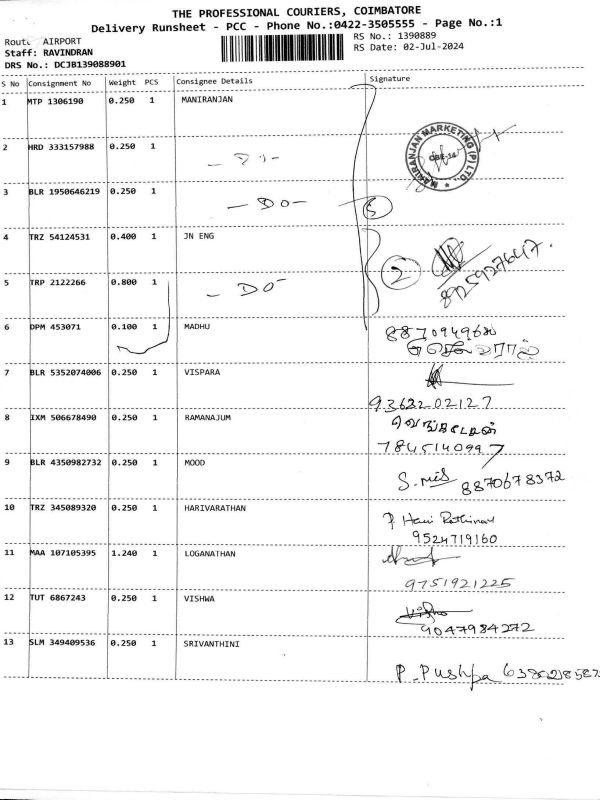 THE PROFESSIONAL COURIERS, COIMBATORE
Delivery Runsheet - PCC - Phone No.:0422-3505555 - Page No.:1
Route AIRPORT
RS No.: 1390889
Staff: RAVINDRAN
RS Date: 02-Jul-2024
DRS No.: DCJB139088901
S No Consignment No Weight PCS Consignee Details Signature
1 MTP 1306190 0.250 1 MANIRANJAN
MANIRANJAN MARKETING (P) LTD.,
2 HRD 333157988 0.250 1 - Do -
3 BLR 1950646219 0.250 1 - Do -
4 TRZ 54124531 0.400 1 JN ENG
2 8925927647.
5 TRP 2122266 0.800 1 - Do -
6 DPM 453071 0.100 1 MADHU
7 BLR 5352074006 0.250 1 VISPARA
9363202127
8 IXM 506678490 0.250 1 RAMANAJUM
7845140997
9 BLR 4350982732 0.250 1 MOOD
8870678372
10 TRZ 345089320 0.250 1 HARIVARATHAN
P. Hari Rathinam
9524719160
11 MAA 107105395 1.240 1 LOGANATHAN
9751921225
12 TUT 6867243 0.250 1 VISHWA
9047984272
13 SLM 349409536 0.250 1 SRIVANTHINI
P. Pushpa